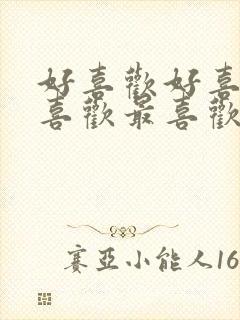 好喜歡好喜
喜歡最喜歡
賽亞小能人16